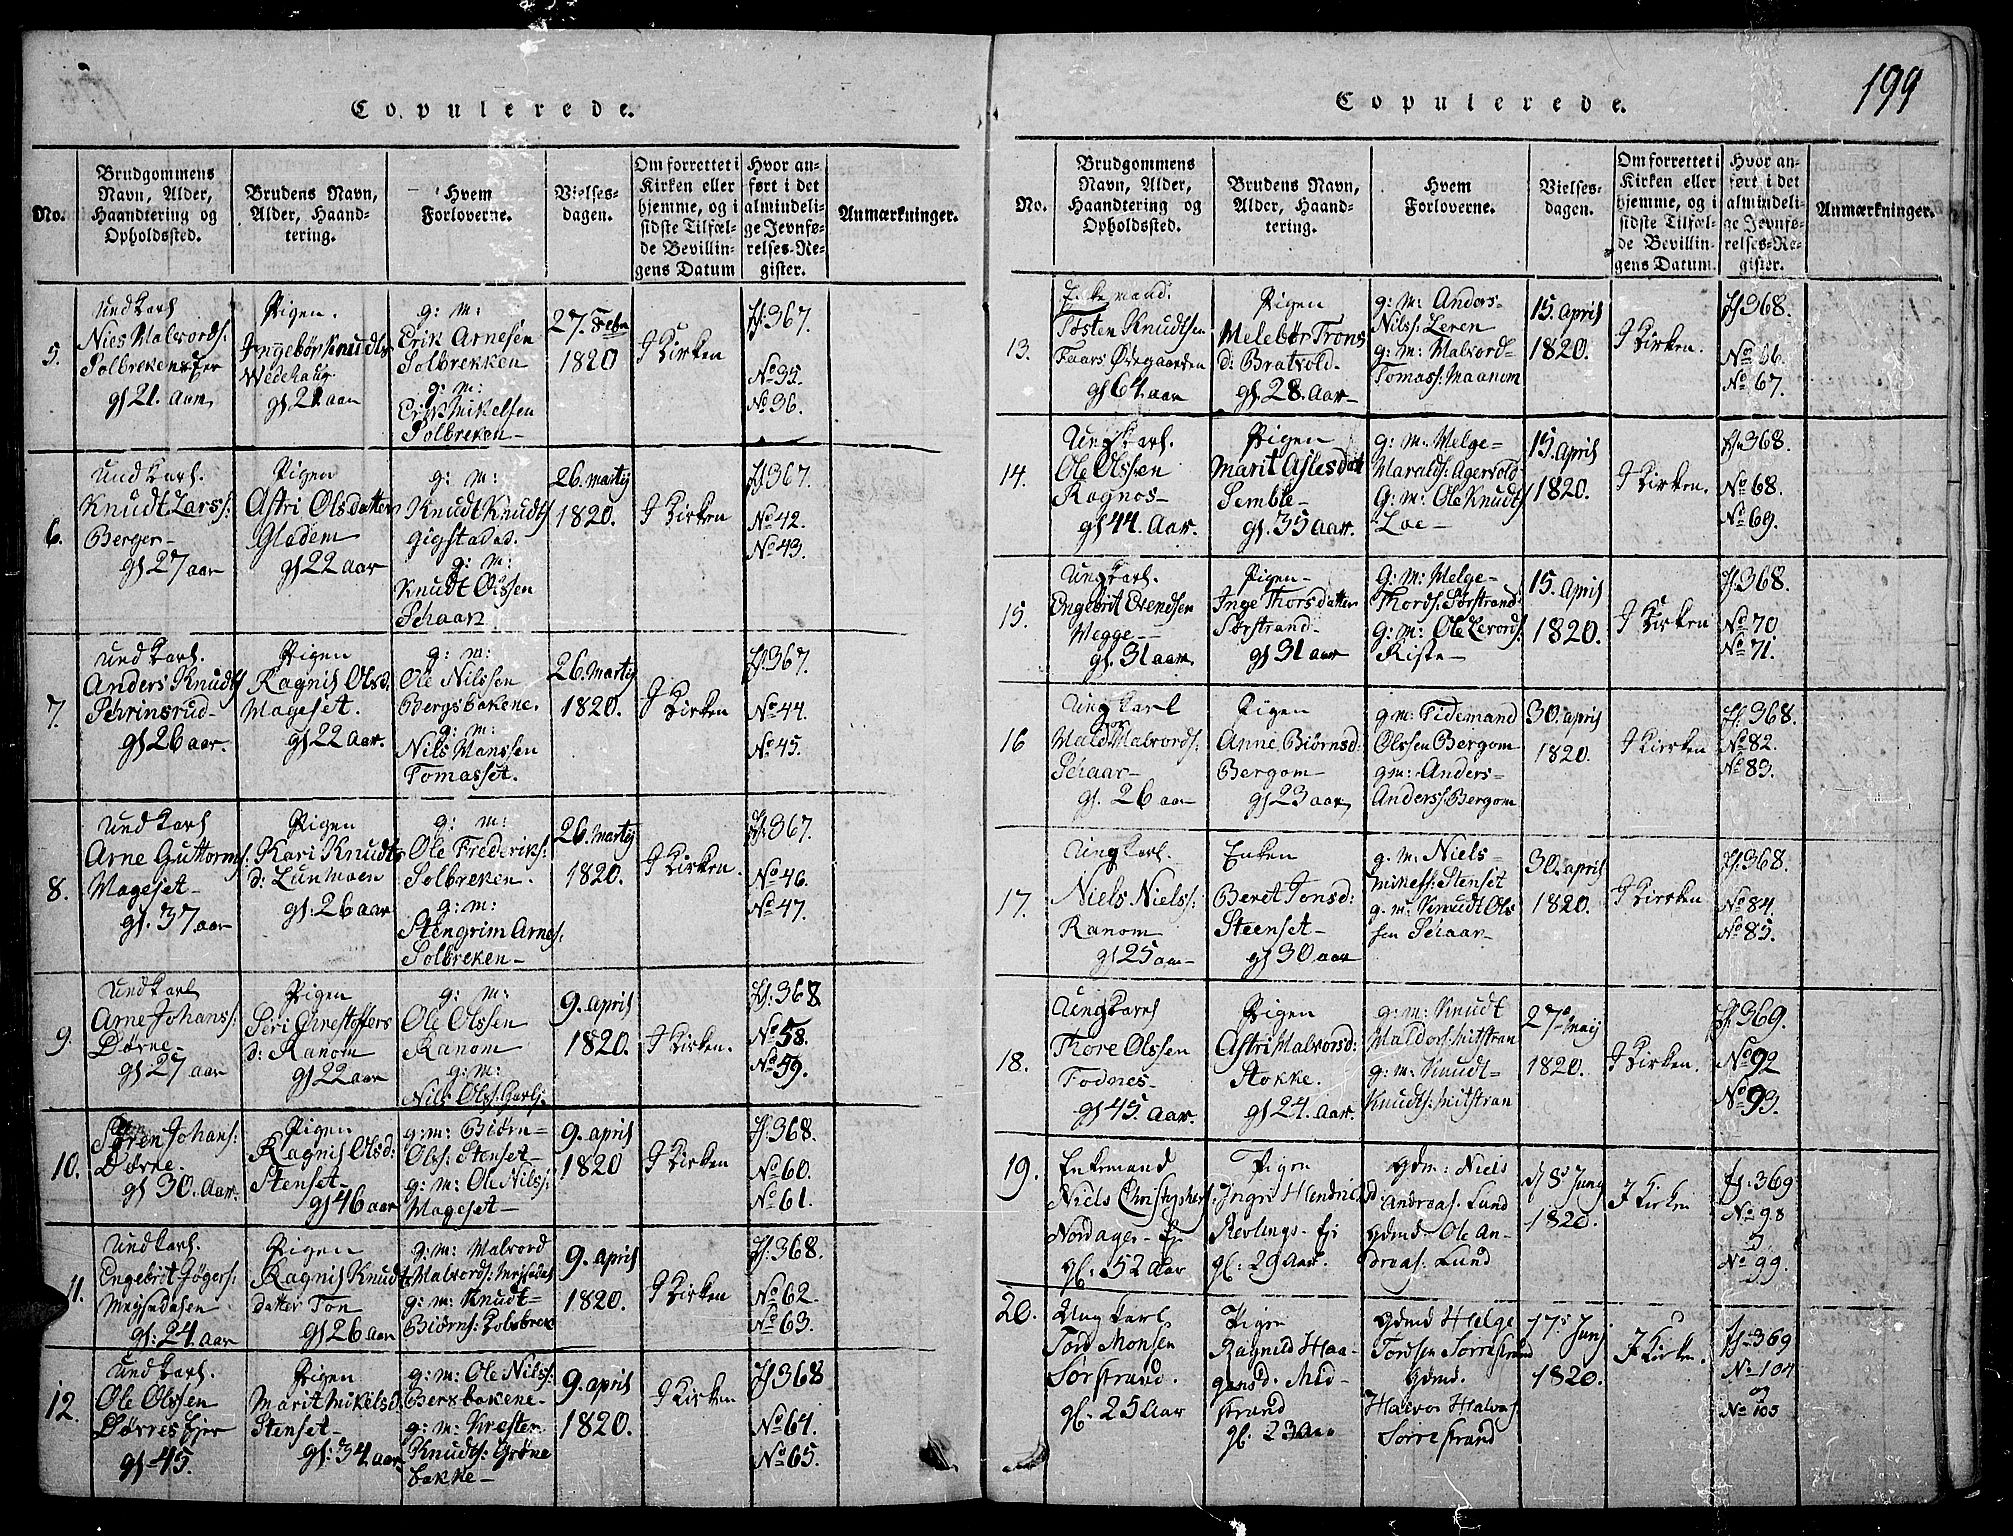 Copulerede.
No.
Brudgommens Navn, Alder, Haandtering og Opholdssted.
Brudens Navn, Alder, Haandtering.
Hvem Forloverne.
Vielsesdagen.
Om forrettet i Kirken eller hjemme, og i sidste Tilfælde Bevillingens Datum
Hvor anført i det almindelige Jevnførelses-Register.
Anmærkninger.
5.
Undkarl
Niels Halvords:
Solbrekensejer
gl 21. aar
Pigen.
Ingebør Knudts
Wedehaug
gl 21 aar
g: m:
Erik Arnesen
Solbrekken
g: m:
Erik Mikelsen
Solbreken
27. Febr
1820
I Kirken
fl: 367.
No 35.
No 36.
6.
Undkarl.
Knudt Larss:
Berger
gl 27 aar
Pigen
Astri Olsdatter
Gladem
gl 22 aar
g: m:
Knudt Knudts
Gigstadas.
g: m:
Knudt Olssen
Schaar
26. Martij
1820.
I Kirken
fl 367.
No 42.
No 43.
7.
Undkarl.
Anders Knudts
gl 26 aar.
Pigen
Ragnil Olsd:
Hageset.
gl 22 aar.
g: m:
Ole Nilssen
Bergsbakene.
g: m:
Nils Hanssen
Tomasset.
26. Martij
1820.
I Kirken
fl: 367.
No 44.
No 45.
8.
Undkarl
Arne Guttorms:
Hageset
gl. 37 aar
Pigen
Kari Knudts
d: Lunmoen
gl. 26 aar
g: m:
Ole Frederiks:
Solbreken.
g: m:
Stengrim Arnes:
Solbreken
26. Martij
1820.
I Kirken.
fl: 367.
No 46.
No 47.
9.
Undkarl
Arne Johans:
Dørre
gl 27 aar
Pigen
Siri Christoffers
d: Ranom
gl 22 aar
g: m:
Ole Olssen
Ranom
g: m:
Nils Olss:
9. April
1820.
I Kirken.
fl: 368
No 58.
No 59.
10.
Søren Johans:
Dørre.
gl 30. Aar.
Pigen
Ragnil Olsd:
Stenset
gl 46 aar
g: m: Biørn
Ols: Stenset
g: m: Ole Nilss:
Hageset
9. April
1820
I Kirken
fl: 368.
No 60.
No 61.
11.
Undkarl.
Engebrit
gl: 24. aar
Pigen
Ragnil Knudts
datter Ton
gl 26 aar
g: m: Halvord
Halvords:
g: m: Knudt
Biørns:
9. April
1820.
I Kirken
fl: 368.
No 62.
No 63.
12.
Undkarl.
Ole Olssen
Dørres Ejer
gl 45.
Pigen
Marit Mikelsd:
Stenset
gl: 34 aar
g: m: Ole Nilss:
Bersbakene
g: m: Krester
Knudts: Grøne
bakke
9. April
1820.
I Kirken
fl 368
No 64.
No 65.
199
Copulerede.
No.
Brudgommens Navn, Alder, Haandtering og Opholdssted.
Brudens Navn, Alder, Haandtering.
Hvem Forloverne.
Vielsesdagen.
Om forrettet i Kirken eller hjemme, og i sidste Tilfælde Bevillingens Datum.
Hvor anført i det almindelige Jevnførelses-Register.
Anmærkninger.
13.
Enkemand.
Tosten Knudtsen
Faars Ødegaarden
gl 64. aar
Pigen
Melebør Trons
d: Bratvold.
gl. 28. Aar
g: m: Anders
Nilss: Leren
g: m: Halvord
Tomass: Haanom
15. April
1820.
I Kirken.
fl 368.
No 66.
No 67.
14.
Ungkarl.
Ole Olssen
Ragnos
gl 44. Aar.
Pigen
Marit Aslesdat
Semble
gl. 35 aar.
g: m: Helge
Haralds: Agervold
g: m: Ole Knudts
Loe
15. April
1820.
I Kirken.
fl 368.
No 68.
No 69.
15.
Ungkarl.
Engebrit Evendsen
Hegge
gl. 31 aar.
Pigen
Inge Thorsdatter
Sørstrand
gl 31 aar
g: m: Helge
Thords: Sørstrand:
g: m: Ole Levords:
Riste
15. April
1820.
I Kirken
fl: 368.
No 70
No 71.
16
Ungkarl
Haldor Halvords:
Schaar
gl. 26 aar
Pigen
Anne Biørnsd:
Bergom
gl 23 aar,
g: m: Tidemand
Olssen Bergom
g: m: Anders
Anderss: Bergom
30. April
1820.
I Kirken
fl: 368.
No 82.
No 83.
17.
Ungkarl.
Niels Nielss:
Ranom
gl 25 aar
Enken
Beret Jonsd:
Steenset
gl 30 aar
g. m: Niels
Mikels: Stenset
g. m: Knudt Ols
sen Schaar
30. April
1820.
I Kirken
fl: 368.
No 84.
No 85.
18.
Ungkarl
Thore Olssen
Fodnes
gl 45. Aar.
Pigen
Astri Halvorsd:
Stokke.
gl 24. Aar
g: m: Knudt
Haldors: Mitstran
g: m: Knudt
Knudts: Mitstran
27. Maij
1820.
I Kirken.
fl: 369.
No 92
No 93.
19.
Enkemand
Niels Christophers:
Nordager Ejer
gl: 52 Aar
Pigen
Ingri Hendrichsd:
gl: 29 Aar.
gdm: Niels
Andreas: Lund
gdmd: Ole An-
dreas: Lund
d 8 Junj
1820.
I Kirken
fl: 369
No 98
No 99.
20.
Ungkarl
Tord Monsen
Sørstrand.
gl: 25 Aar
Pigen
Ragnild Haa-
gensd: Mid-
strand
gl. 23 Aar
gdmd Helge
Tordsen Sørrestrand
gdmd:
Halvor Halvors:
Sørrestrand
17. Junj
1820.
I Kirken.
fl: 369
No 104
og
No 105